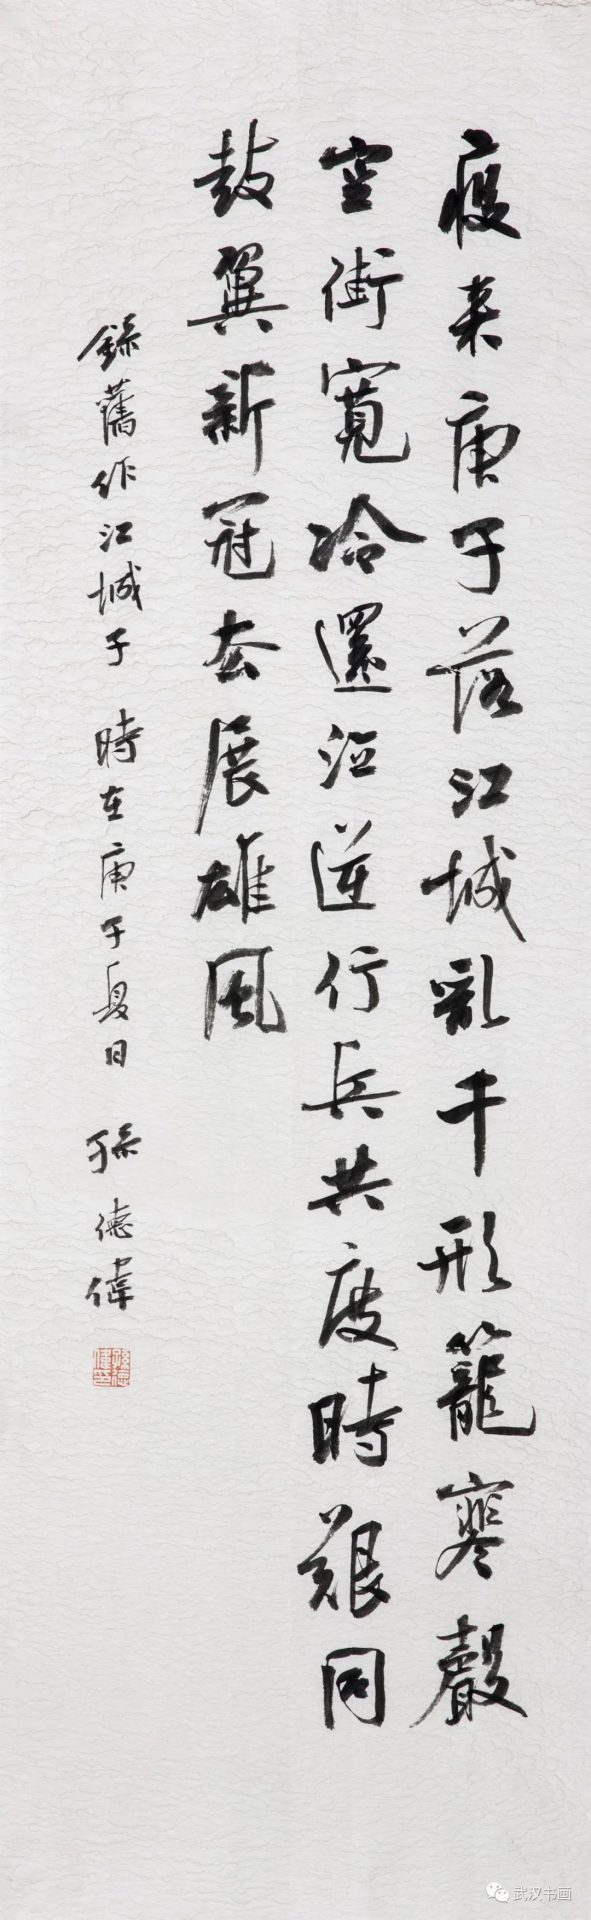 疫来庚子落江城亂千形籠寒聲
空街寬冷還沍逆行兵共度時艱同
鼓翼新冠去展雄風
錄舊作江城子 時在庚子夏日 孫德偉
孫德偉印
武汉书画